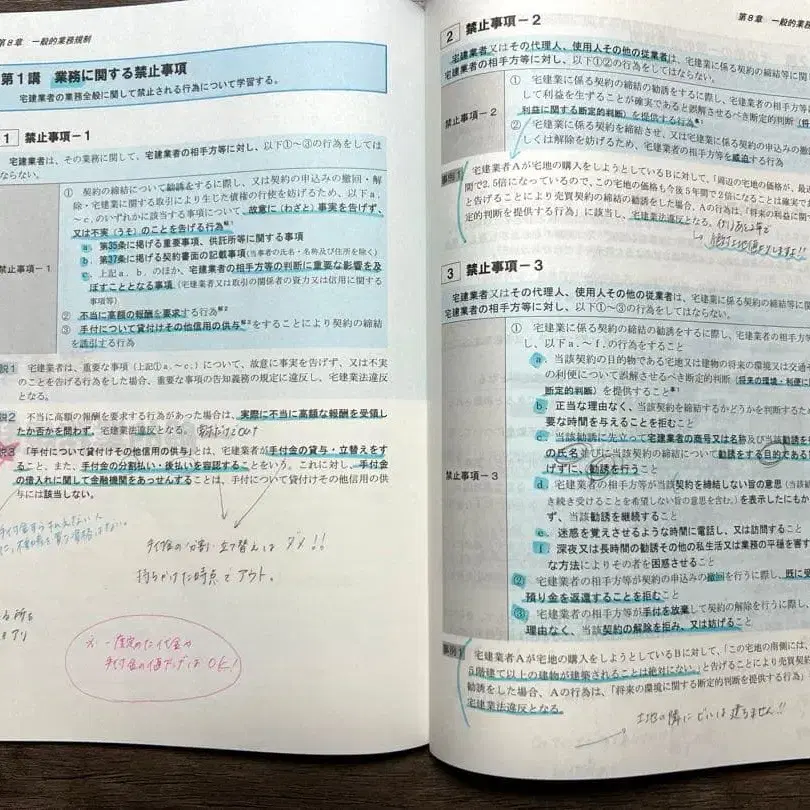 第8章 一般的業務規制
第1講 業務に関する禁止事項
宅建業者の業務全般に関して禁止される行為について学習する。
1 禁止事項-1
宅建業者は、その業務に関して、宅建業者の相手方等に対し、以下①~③の行為をしては
ならない。
禁止事項-1
① 契約の締結について勧誘をするに際し、又は契約の申込みの撤回・解
除・宅建業に関する取引により生じた債権の行使を妨げるため、以下a.
~c.のいずれかに該当する事項について、故意に(わざと)事実を告げず、
又は不実(うそ)のことを告げる行為※1
a. 第35条に掲げる重要事項、供託所等に関する事項
b. 第37条に掲げる契約書面の記載事項(当事者の氏名・名称及び住所を除く)
c. 上記a.b.のほか、宅建業者の相手方等の判断に重要な影響を及
ぼすこととなる事項(宅建業者又は取引の関係者の資力又は信用に関する
事項等)
② 不当に高額の報酬を要求する行為※2
③ 手付について貸付けその他信用の供与※3をすることにより契約の締結
を誘引する行為
説1 宅建業者は、重要な事項(上記①a.~c.)について、故意に事実を告げず、又は不実
のことを告げる行為をした場合、重要な事項の告知義務の規定に違反し、宅建業法違反
となる。
説2 不当に高額の報酬を要求する行為があった場合は、実際に不当に高額な報酬を受領し
たか否かを問わず、宅建業法違反となる。
説3 「手付について貸付けその他信用の供与」とは、宅建業者が手付金の貸与・立替えをす
ること、また、手付金の分割払い・後払いを容認することをいう。これに対し、手付金
の借入れに関して金融機関をあっせんすることは、手付について貸付けその他信用の供
与には該当しない。
手付金の分割、立て替えは ダメ!!
持ちかけた時点で アウト。
手付金の値下げは OK!
第8章 一般的業務
2 禁止事項-2
宅建業者又はその代理人、使用人その他の従業者は、宅建業に係る契約の締結等に関
宅建業者の相手方等に対し、以下①②の行為をしてはならない。
禁止事項-2
① 宅建業に係る契約の締結の勧誘をするに際し、宅建業者の相手方等に
して利益を生ずることが確実であると誤解させるべき断定的判断(将
利益に関する断定的判断)を提供する行為
② 宅建業に係る契約を締結させ、又は宅建業に係る契約の申込みの
しくは解除を妨げるため、宅建業者の相手方等を威迫する行為
事例1 宅建業者Aが宅地の購入をしようとしているBに対して、「周辺の宅地の価格が、最
間で2.5倍になっているので、この宅地の価格も今後5年間で2倍になることは確実であ
と告げることにより売買契約の締結の勧誘をした場合、Aの行為は、「将来の利益に関
定的判断を提供する行為」に該当し、宅建業法違反となる。
3 禁止事項-3
宅建業者又はその代理人、使用人その他の従業者は、宅建業に係る契約の締結等に関
宅建業者の相手方等に対し、以下①~③の行為をしてはならない。
禁止事項-3
① 宅建業に係る契約の締結の勧誘をするに際し、宅建業者の相手方等
し、以下a.~f.の行為をすること
a. 当該契約の目的物である宅地又は建物の将来の環境又は交通そ
の利便について誤解させるべき断定的判断(将来の環境・利便に
断定的判断)を提供すること
b. 正当な理由なく、当該契約を締結するかどうかを判断するため
要な時間を与えることを拒むこと
c. 当該勧誘に先立って宅建業者の商号又は名称及び当該勧誘を
の氏名並びに当該契約の締結について勧誘をする目的である旨
げずに、勧誘を行うこと
d. 宅建業者の相手方等が当該契約を締結しない旨の意思(当該勧
き続き受けることを希望しない旨の意思を含む。)を表示したにもか
ず、当該勧誘を継続すること
e. 迷惑を覚えさせるような時間に電話し、又は訪問すること
f. 深夜又は長時間の勧誘その他の私生活又は業務の平穏を害す
な方法によりその者を困惑させること
② 宅建業者の相手方等が契約の申込みの撤回を行うに際し、既に受
預り金を返還することを拒むこと
③ 宅建業者の相手方等が手付を放棄して契約の解除を行うに際し、
理由なく、契約の解除を拒み、又は妨げること
事例1 宅建業者Aが宅地の購入をしようとしているBに対して、「この宅地の南側には、
5階建て以上の建物が建築されることは絶対にない。」と告げることにより売買契約
勧誘をした場合、Aの行為は、「将来の環境に関する断定的判断を提供する行為」
宅建業法違反となる。
土地の隣にビルは建ちません!!